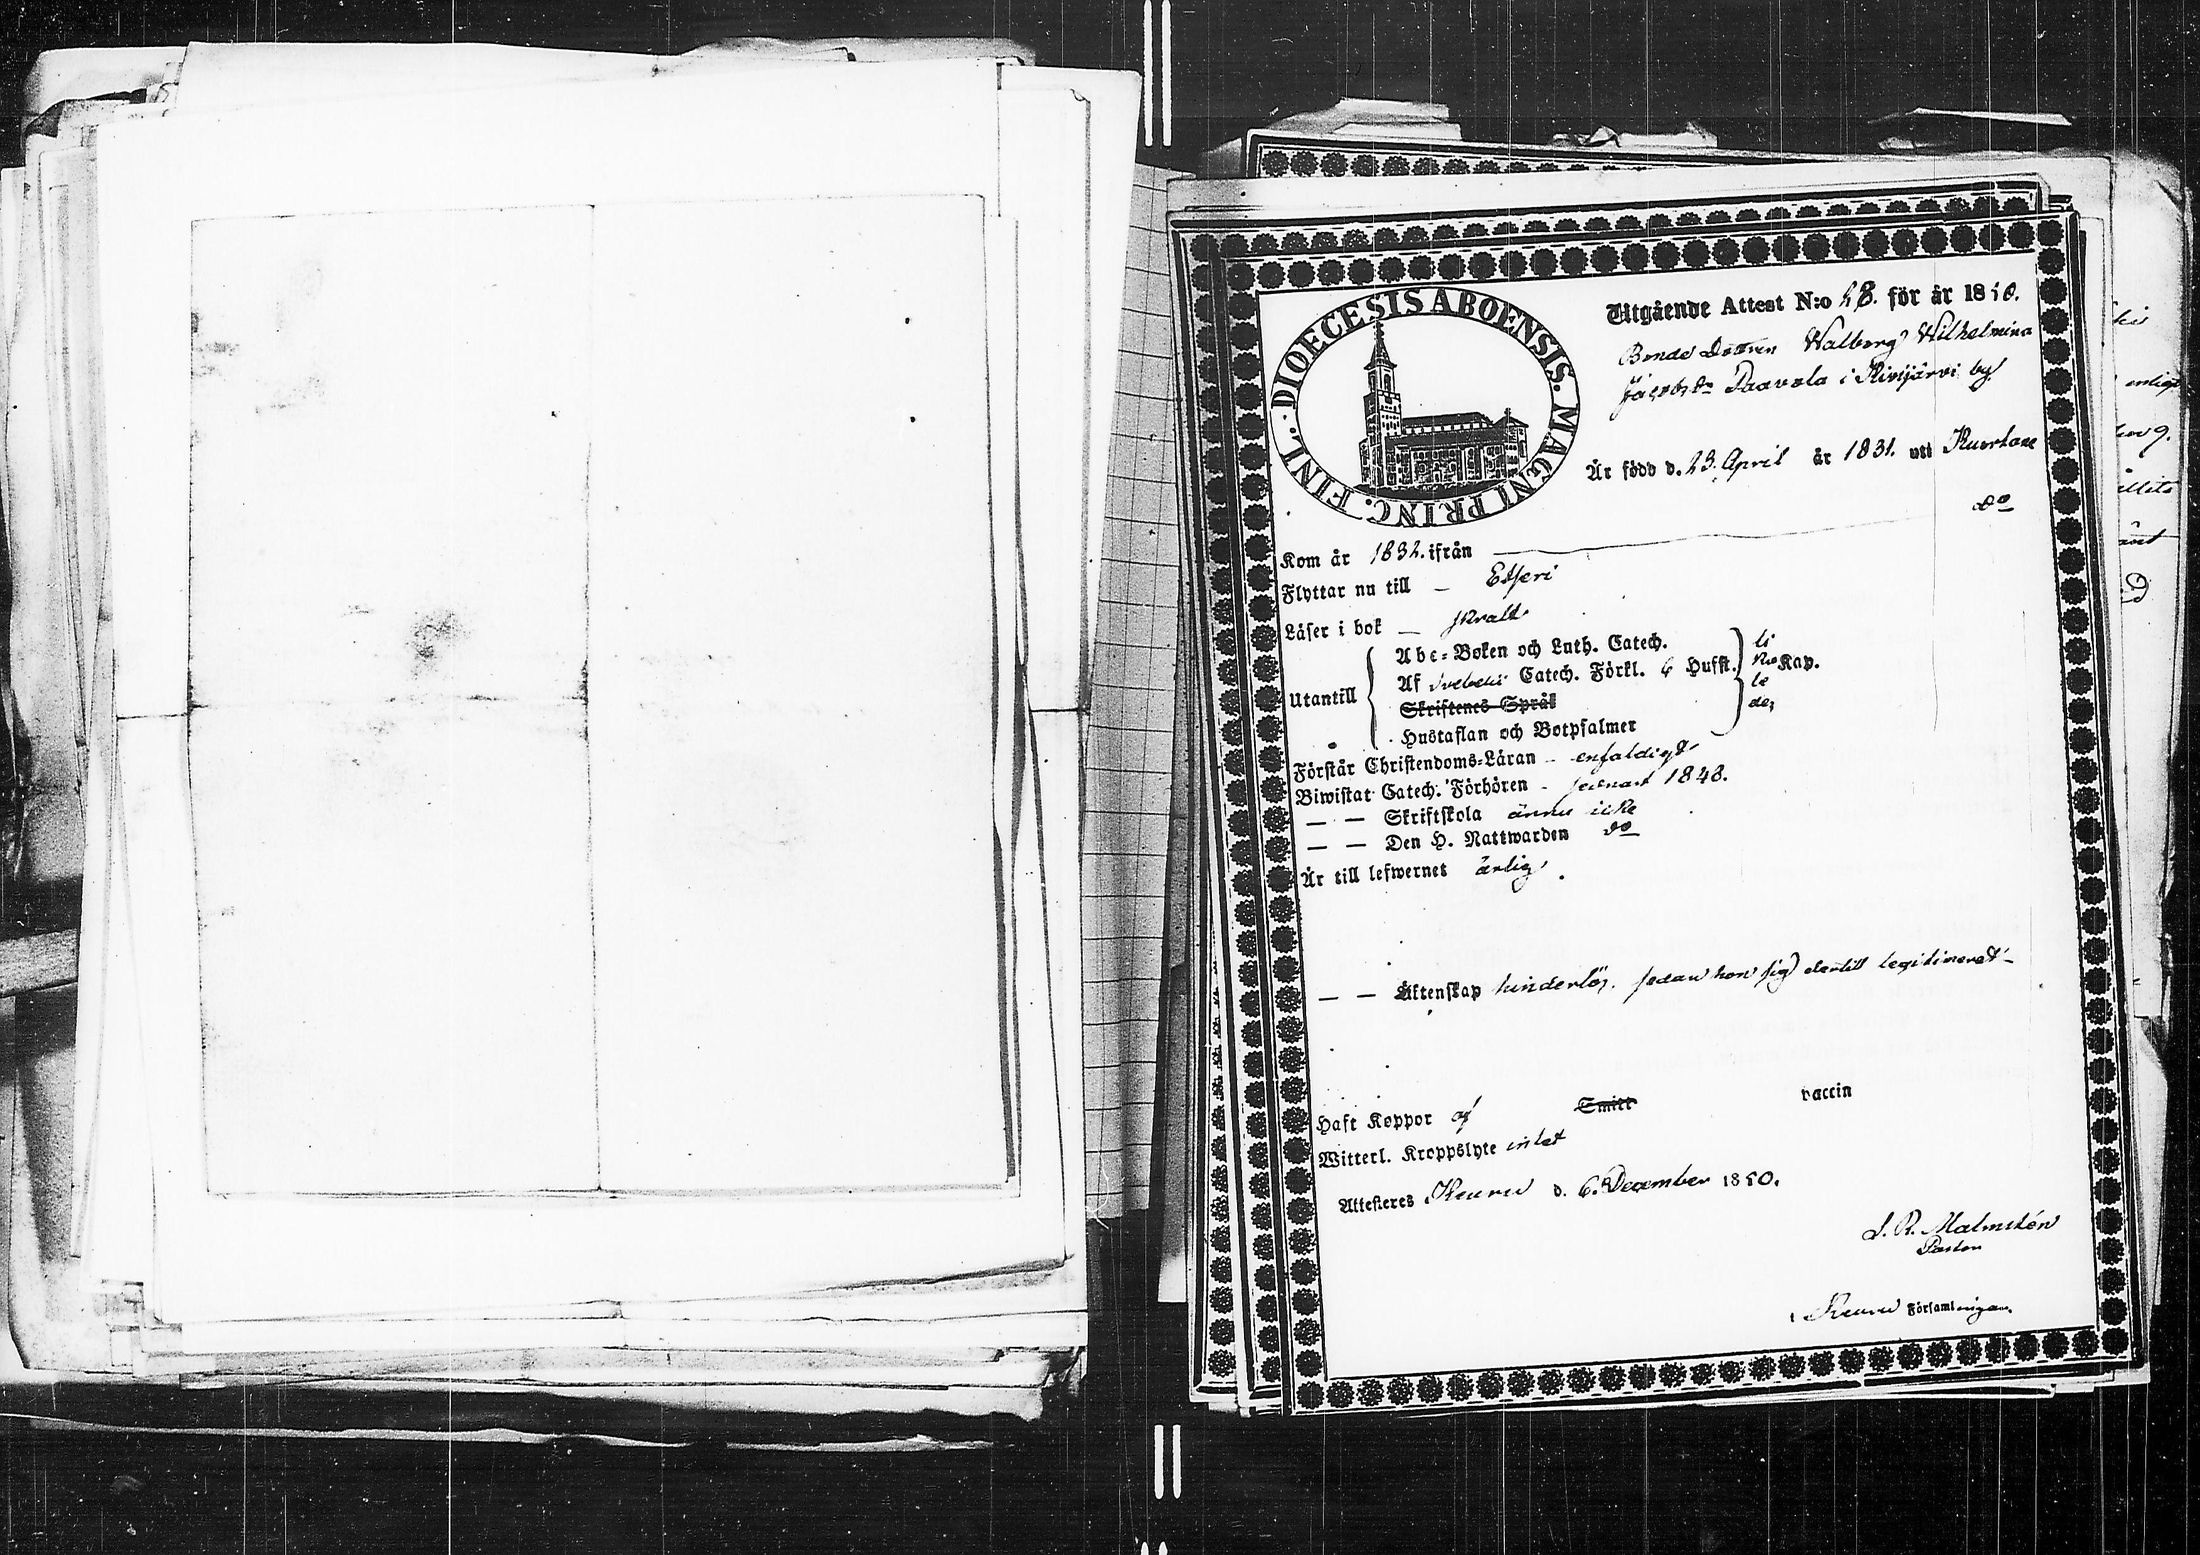 DIOECESIS ABOENSIS. MAGNI PRINC. FINL.
Utgående Attest N:o 28. för år 1850.
Bonde Dottren Walborg Wilhelmina
Jacobsdr Paavola i Kivijärvi by
Är född d. 23. April år 1831. uti Kuortane
Kom år 1832. ifrån — do
Flyttar nu till — Etseri
Läser i bok — svalt
Utantill
Abc-Boken och Luth. Catech.
Af Svebelii Catech. Förkl. 6 Hufst. Kap.
Skriftenes Språk
Hustaflan och Botpsalmer
Förstår Christendoms-Läran - enfaldigt
Biwistat Catech. Förhören - sednast 1848.
— — Skriftskola ännu icke
— — Den H. Nattwarden do
Är till lefwernet ärlig
— — Äktenskap hinderlös, sedan hon sig dertill legitimerat
Haft Koppor af Smitt vaccin
Witterl. Kroppslyte intet
Attesteres Keuru d. 6. December 1850.
J. R. Malmstén
Pastor
i Keuru Församlingen.
enligt